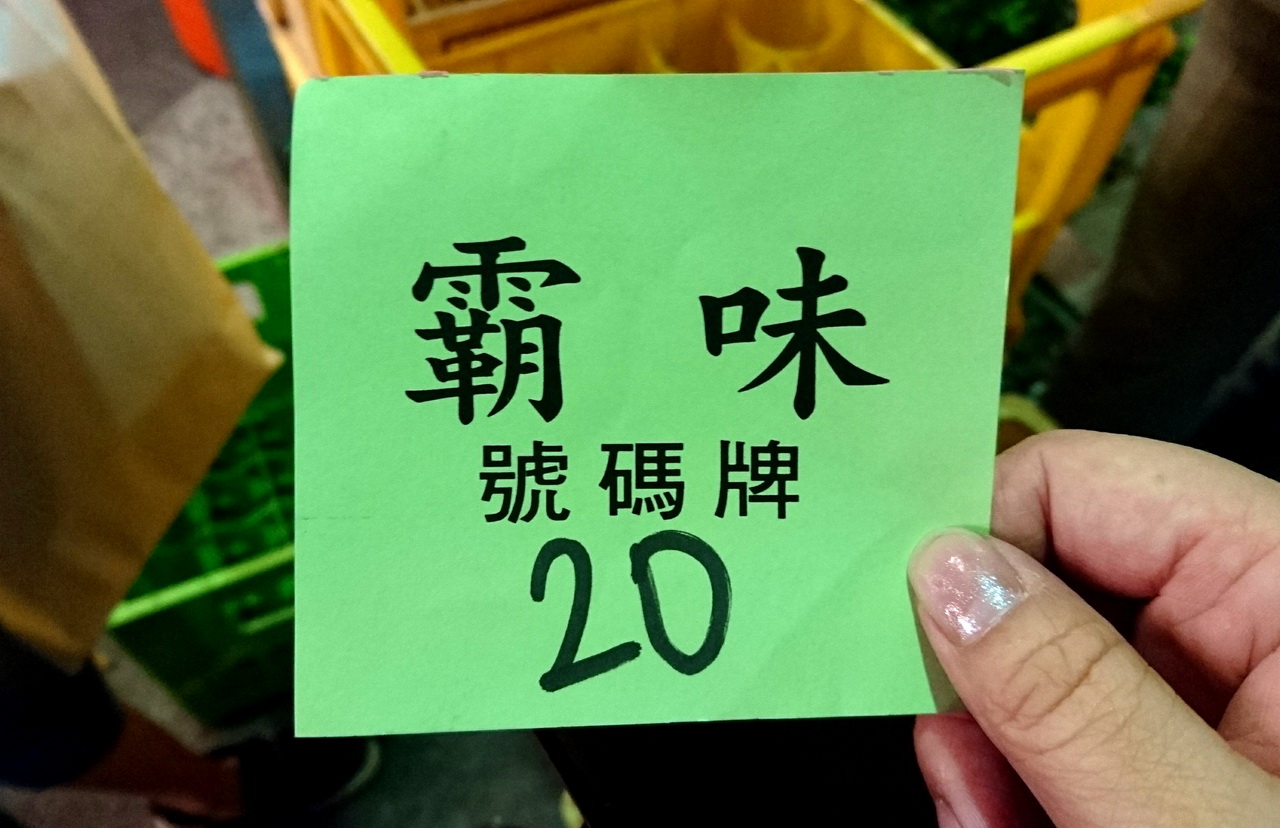 霸味
號碼牌
20